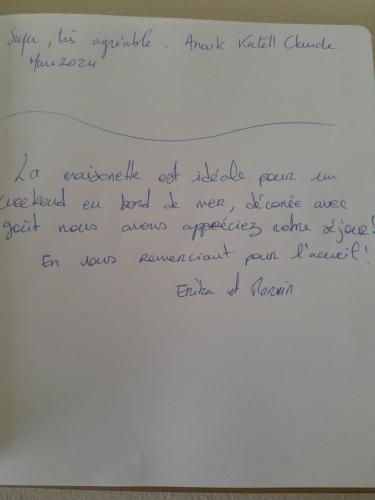 Super, très agréable. Anouk Katell Claude.
Mars 2024
La maisonette est idéale pour un
weekend en bord de mer, décorée avec
goût nous avons appréciez notre séjour!
En vous remerciant pour l'accueil!
Erika et